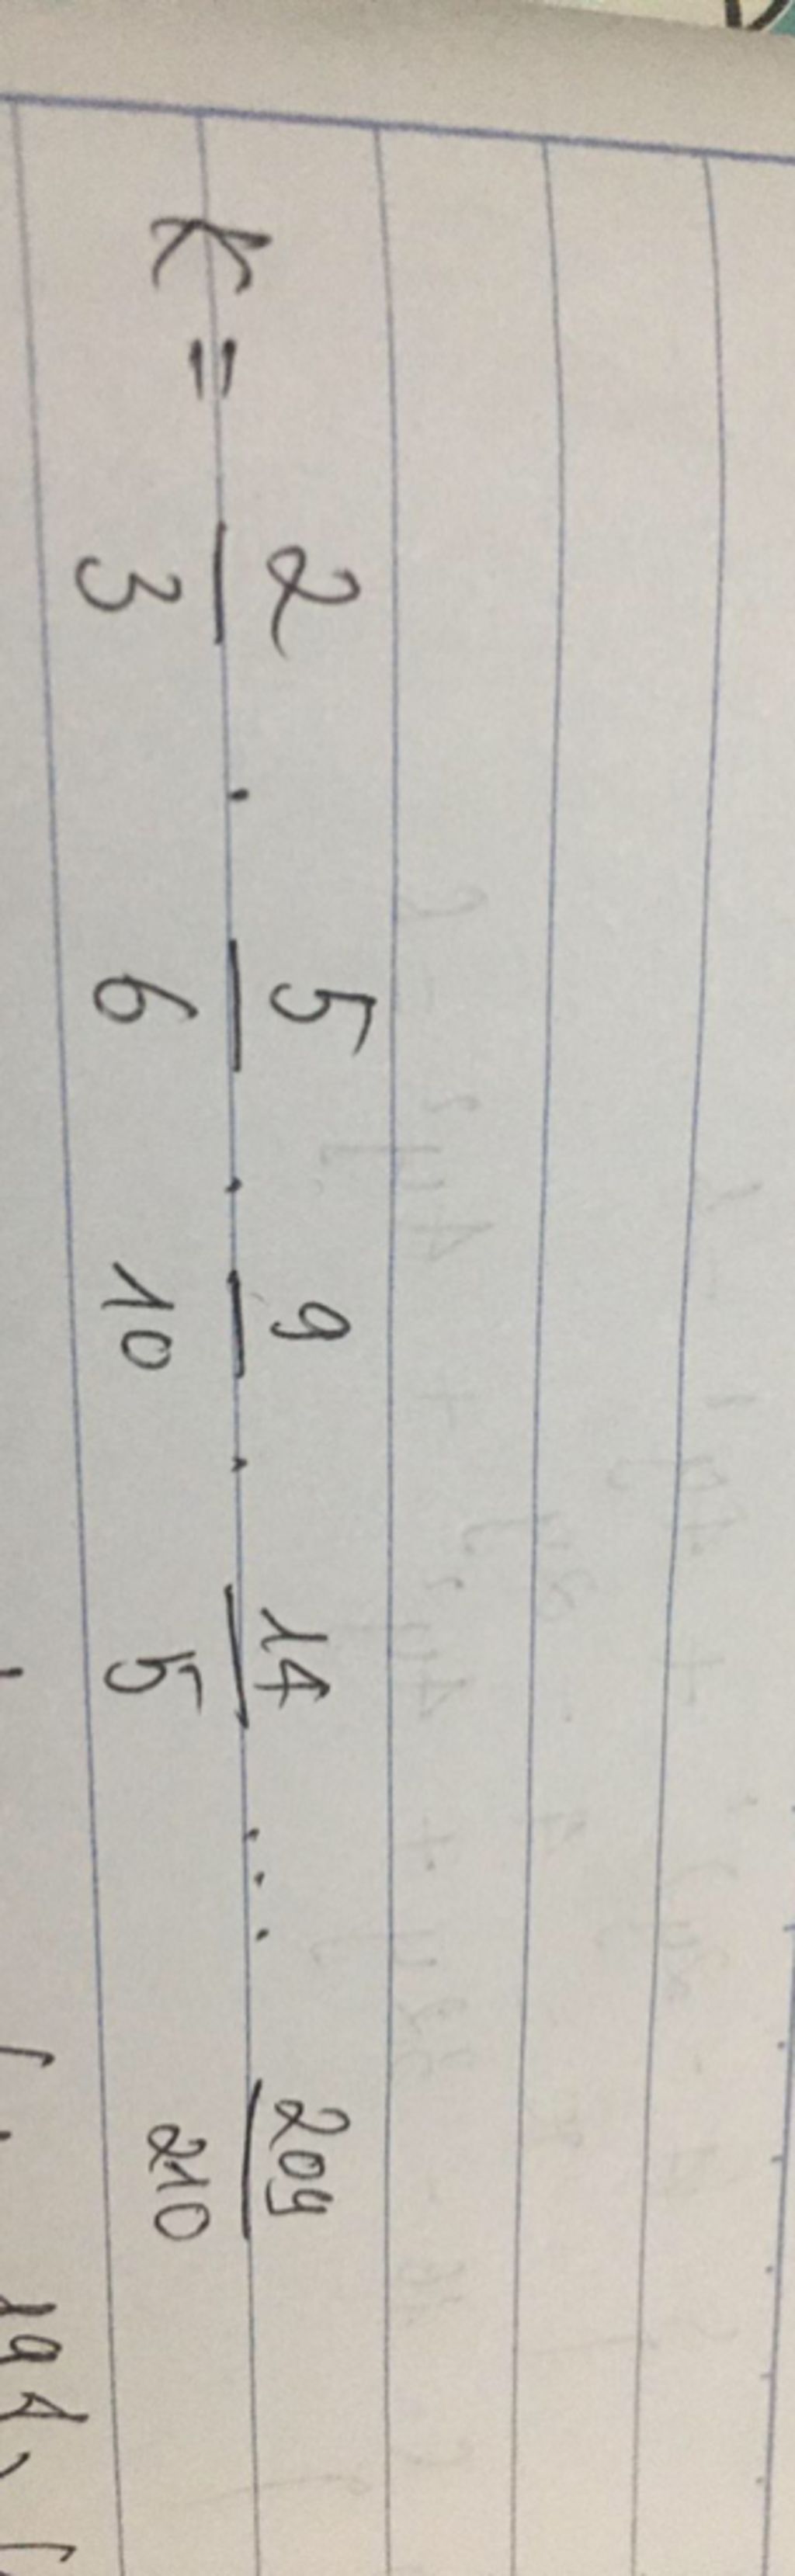 K = 2/3 . 5/6 . 9/10 . 14/5 ... 209/210